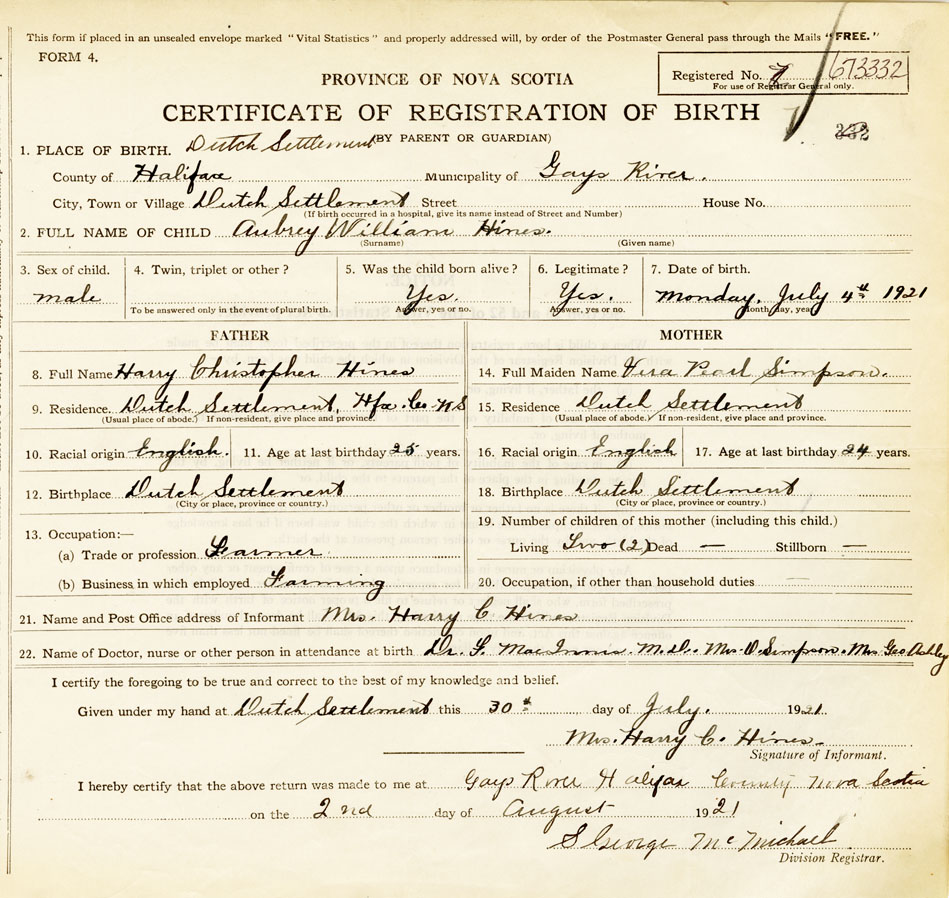 This form if placed in an unsealed envelope marked "Vital Statistics" and properly addressed will, by order of the Postmaster General pass through the Mails "FREE."
FORM 4.
PROVINCE OF NOVA SCOTIA
Registered No. 7 673332
For use of Registrar General only.
CERTIFICATE OF REGISTRATION OF BIRTH
(BY PARENT OR GUARDIAN)
232
1. PLACE OF BIRTH. Dutch Settlement
County of Halifax Municipality of Gays River.
City, Town or Village Dutch Settlement Street House No.
(If birth occurred in a hospital, give its name instead of Street and Number)
2. FULL NAME OF CHILD Aubrey William Hines.
(Surname) (Given name)
3. Sex of child. 4. Twin, triplet or other? 5. Was the child born alive? 6. Legitimate? 7. Date of birth.
male Yes. Yes. Monday, July 4th 1921
To be answered only in the event of plural birth. Answer, yes or no. Answer, yes or no. Month, day, year
FATHER MOTHER
8. Full Name Harry Christopher Hines 14. Full Maiden Name Vera Pearl Simpson.
9. Residence. Dutch Settlement, Hfx. Co. N S 15. Residence Dutch Settlement
(Usual place of abode.) If non-resident, give place and province. (Usual place of abode.) If non-resident, give place and province.
10. Racial origin English. 11. Age at last birthday 25 years. 16. Racial origin English 17. Age at last birthday 24 years.
12. Birthplace Dutch Settlement 18. Birthplace Dutch Settlement
(City or place, province or country.) (City or place, province or country.)
13. Occupation:— 19. Number of children of this mother (including this child.)
(a) Trade or profession Farmer Living Two (2) Dead — Stillborn —
(b) Business in which employed Farming 20. Occupation, if other than household duties —
21. Name and Post Office address of Informant Mrs. Harry C. Hines
22. Name of Doctor, nurse or other person in attendance at birth Dr. MacInnis. M.D. Mrs. D. Simpson. Mrs Geo Ashley
I certify the foregoing to be true and correct to the best of my knowledge and belief.
Given under my hand at Dutch Settlement this 30th day of July. 1921
Mrs. Harry C. Hines.
Signature of Informant.
I hereby certify that the above return was made to me at Gays River Halifax County Nova Scotia
on the 2nd day of August 1921
S George McMichael
Division Registrar.